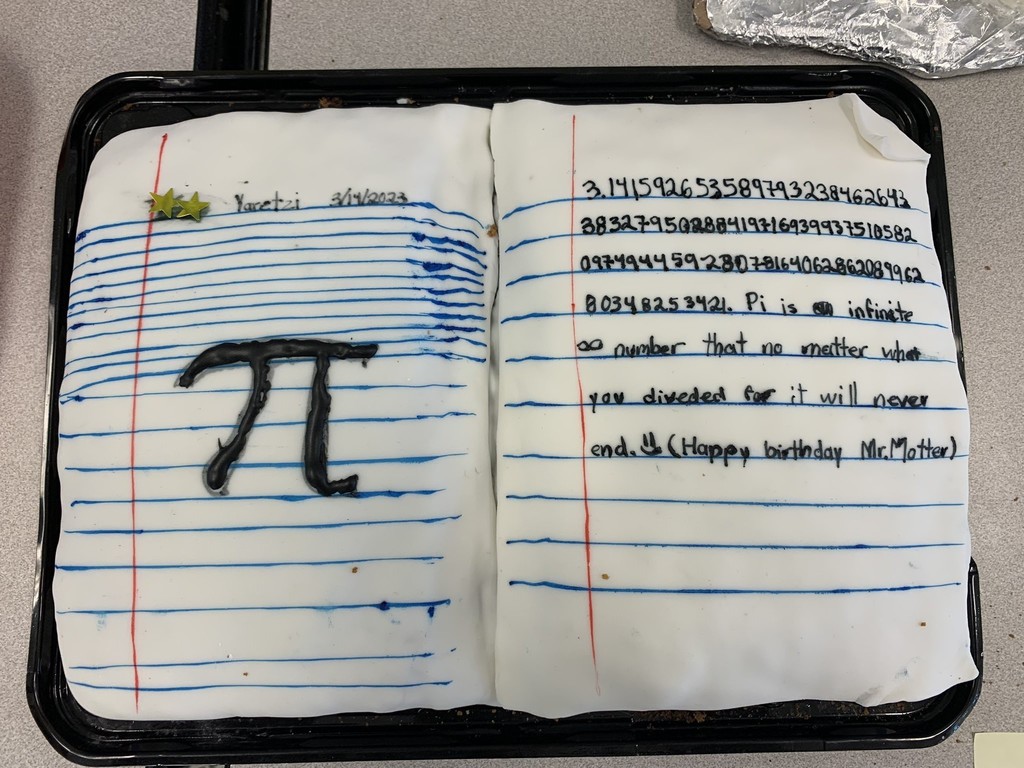 Yaretzi 3/14/2023
π
3.14159265358979323846264
3
383279502884197169399375105 82
097494459230781640628620899 62
80348253421. Pi is an infinite
∞ number that no matter what
you diveded for it will never
end. (Happy birthday Mr.Motter)